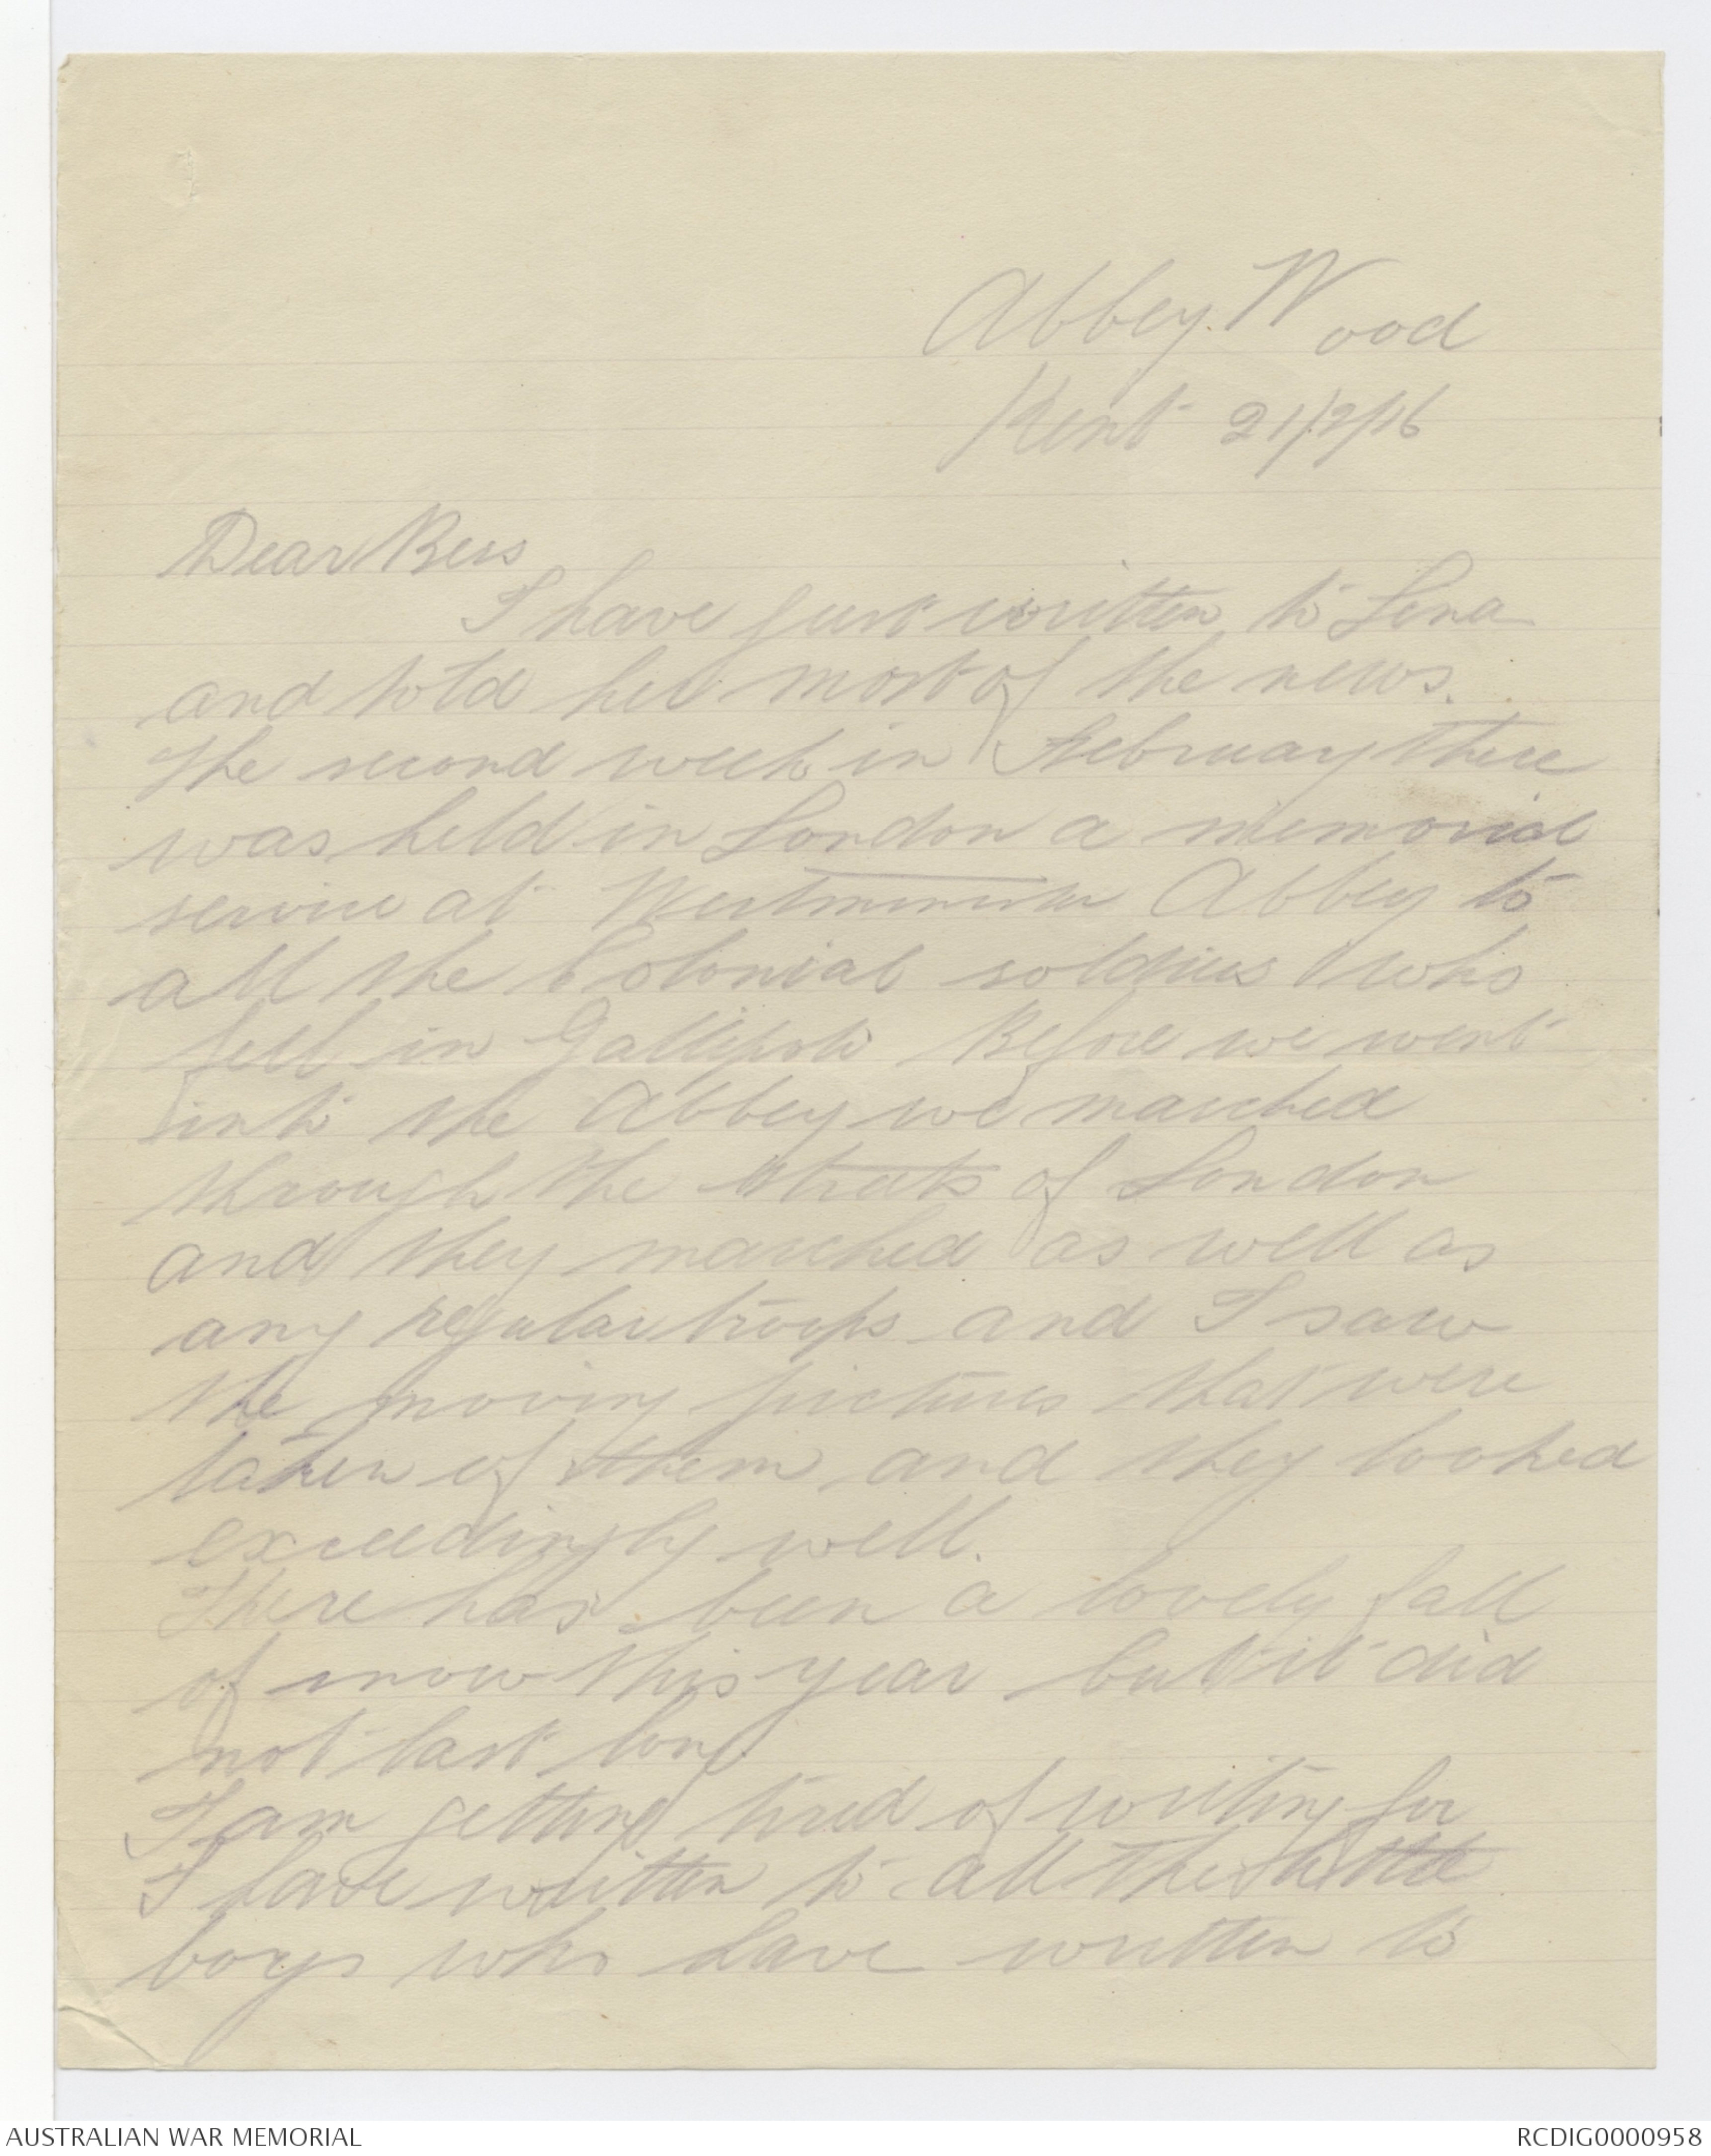 Abbey Wood
Kent 21/2/16
Dear Bess
I have just written to Lena
and told her most of the news.
The second week in February there
was held in London a memorial
service at Westminster Abbey to
all the Colonial soldiers who
fell in Gallipoli Before we went
into the Abbey we marched
through the streets of London
and they marched as well as
any regular troops and I saw
the moving pictures that were
taken of them and they looked
exceedingly well.
There has been a lovely fall
of snow this year but it did
not last long.
I am getting tired of writing for
I have written to all the little
boys who have written to
AUSTRALIAN WAR MEMORIAL
RCDIG0000958